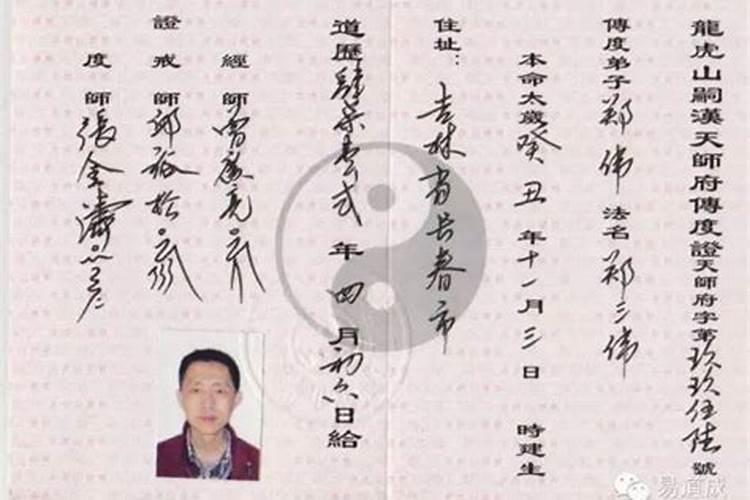 龍虎山嗣漢天師府傳度證天師府字第玖玖伍陆號
傳度弟子郑偉法名郑三偉
本命太歲癸丑年十一月三日 時建生
住址：吉林省长春市
道歷肆柒壹弍年四月初六日給
經師曾廣亮
證戒師邱裕松
度師張金濤